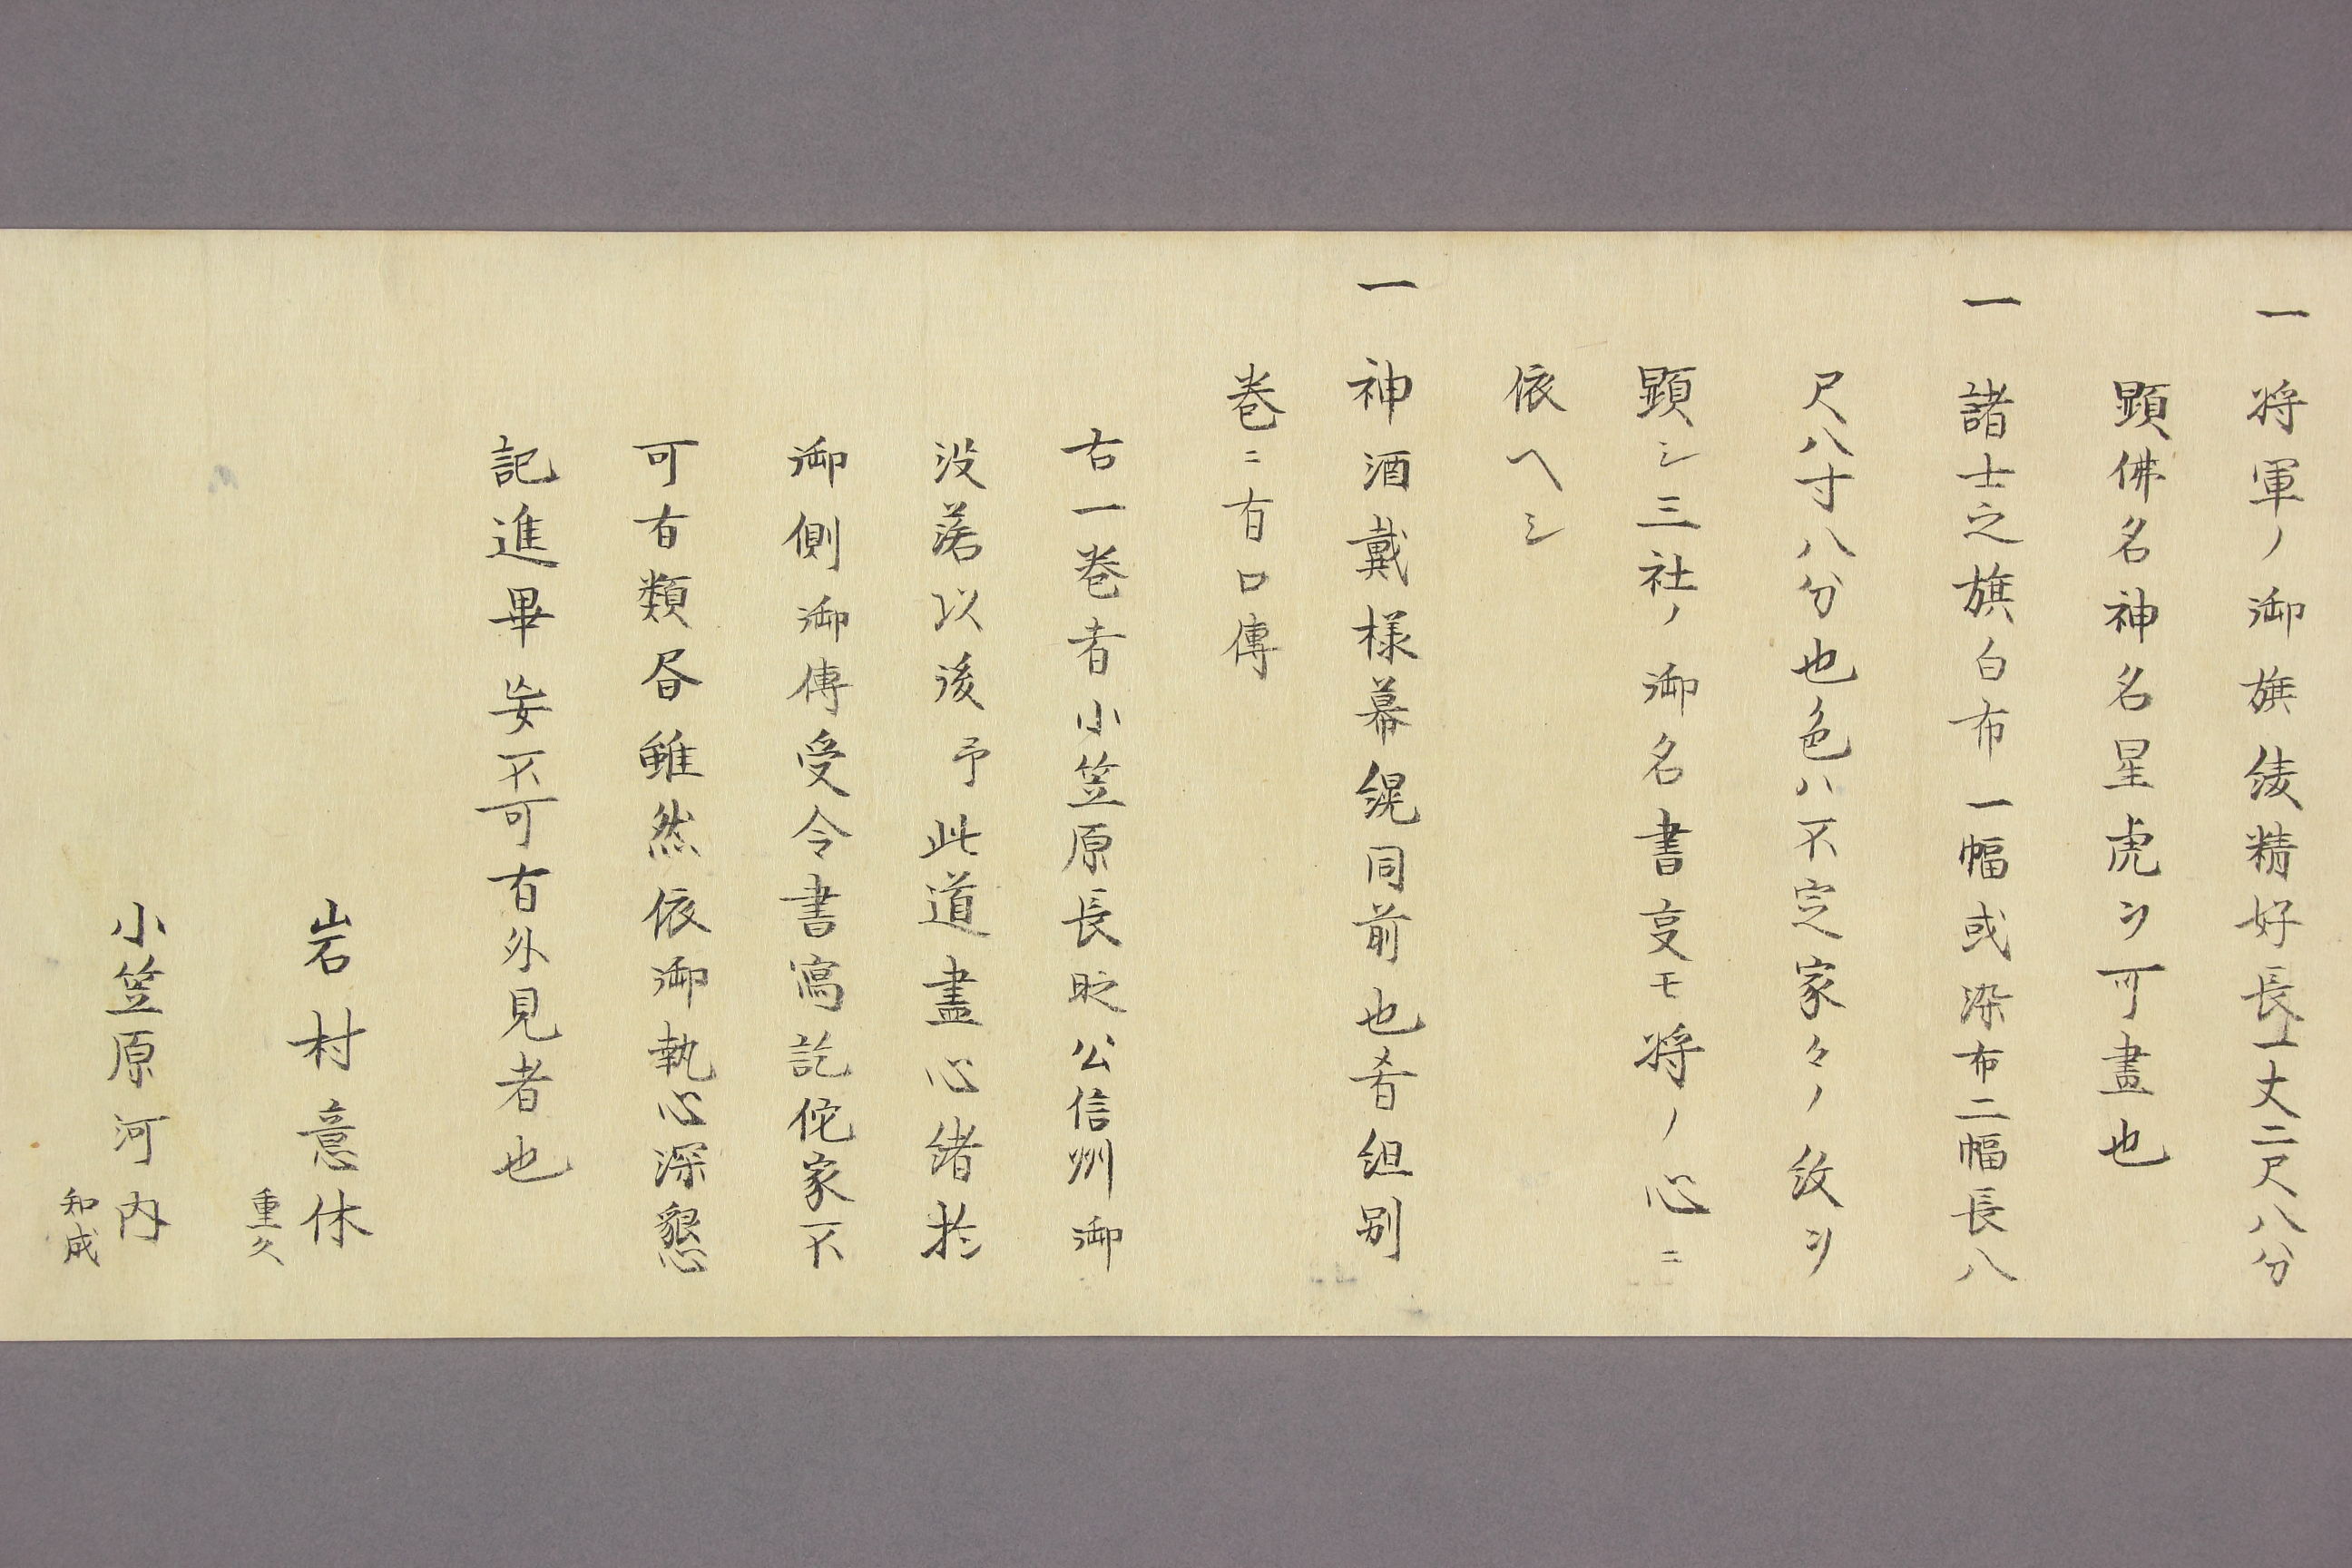 一将軍ノ御旗綾精好長一丈二尺八分
顕佛名神名星虎ヲ可畫也
一諸士之旗白布一幅或染布二幅長八
尺八寸八分也色ハ不定家々ノ紋ヲ
顕シ三社ノ御名書㕝モ将ノ心ニ
依ヘシ
一神酒戴様幕縨同前也肴組別
巻ニ有口傳
右一巻者小笠原長时公信州御
没落以後予此道盡心緒於
御側御傳受令書寫訖佗家不
可有類昏雖然依御執心深懇
記進畢妄不可有外見者也
岩村意休
重久
小笠原河内
知成